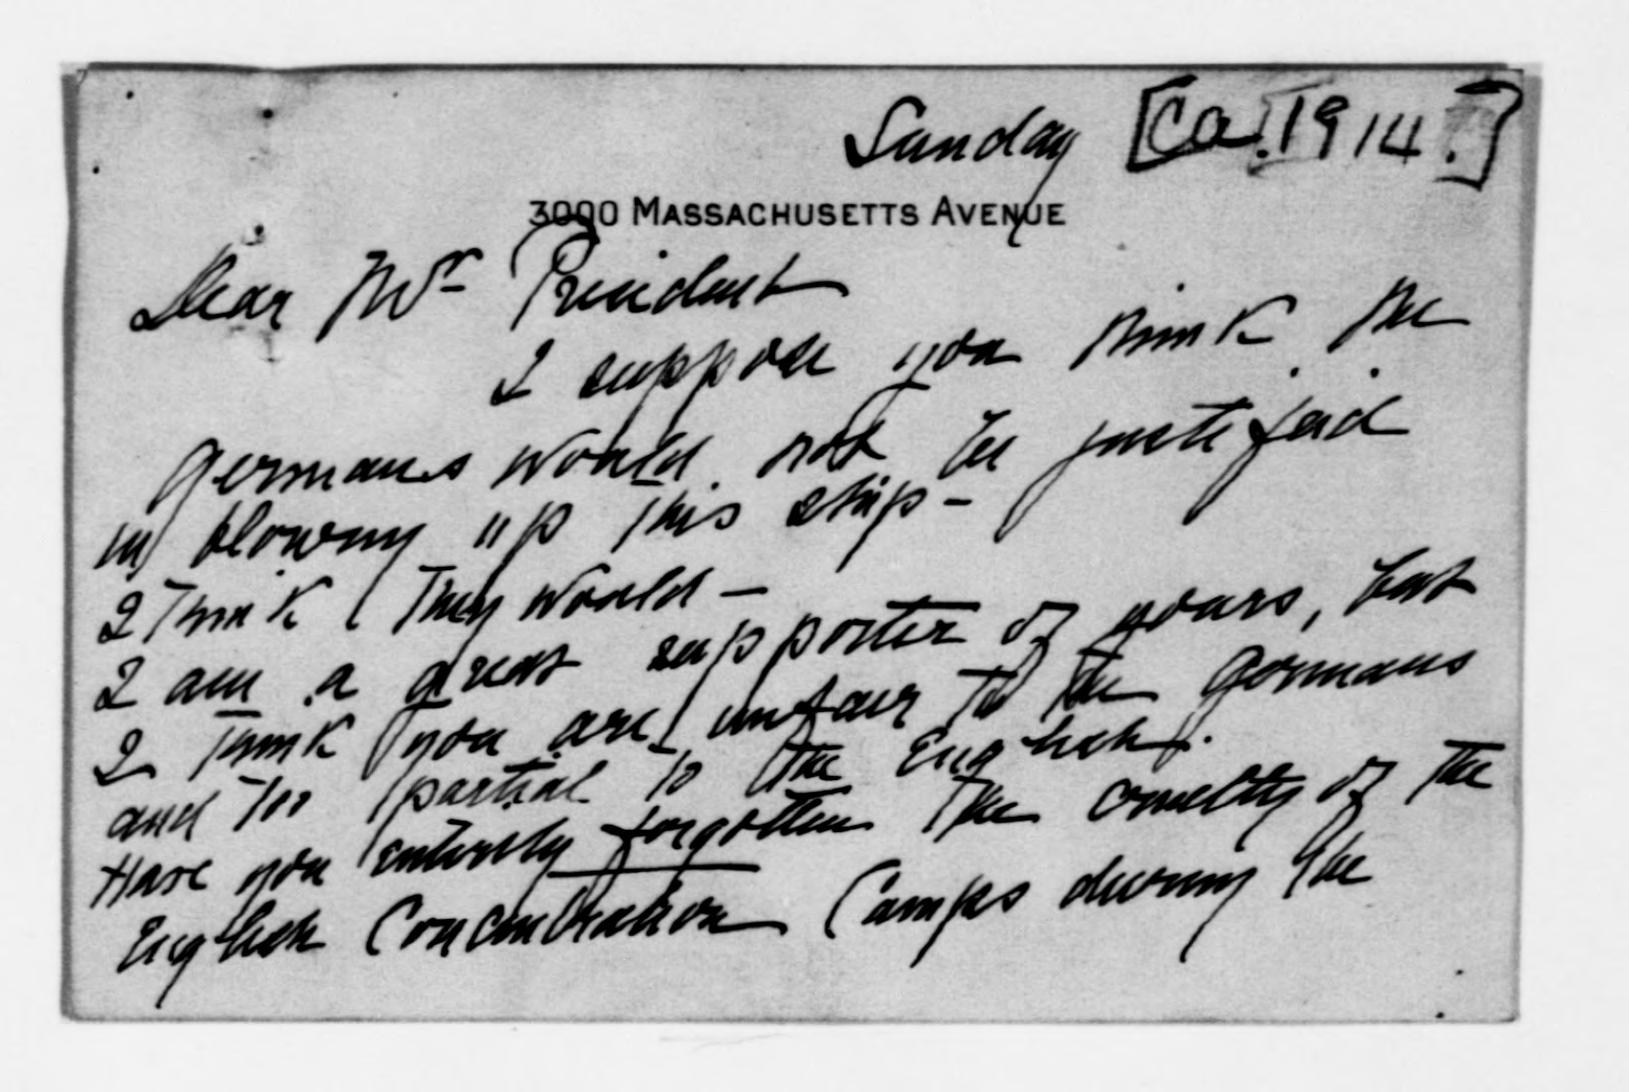 Sunday [Ca. 1914.]
3000 MASSACHUSETTS AVENUE
Dear Mr President
I suppose you think the
Germans would not be justified
in blowing up this ship -
I think they would -
I am a great supporter of yours, but
I think you are unfair to the Germans
and too partial to the English.
Have you entirely forgotten the cruelty of the
English Concentration Camps during the